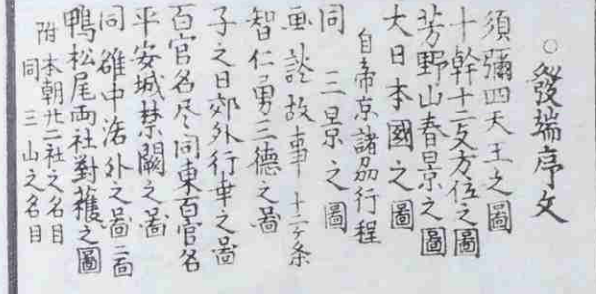 ○發端序文
須彌四天王之圖
十幹十二支方位之圖
芳野山春景之圖
大日本國之圖
自帝京諸刕行程
同三景之圖
画談故事十二ケ条
智仁勇三德之啚
子之日郊外行幸之啚
百官名尽同東百官名
平安城禁闕之啚
同雒中洛外之啚二面
鴨松尾両社對擁之圖
附本朝廿二社之名目
同三山之名目